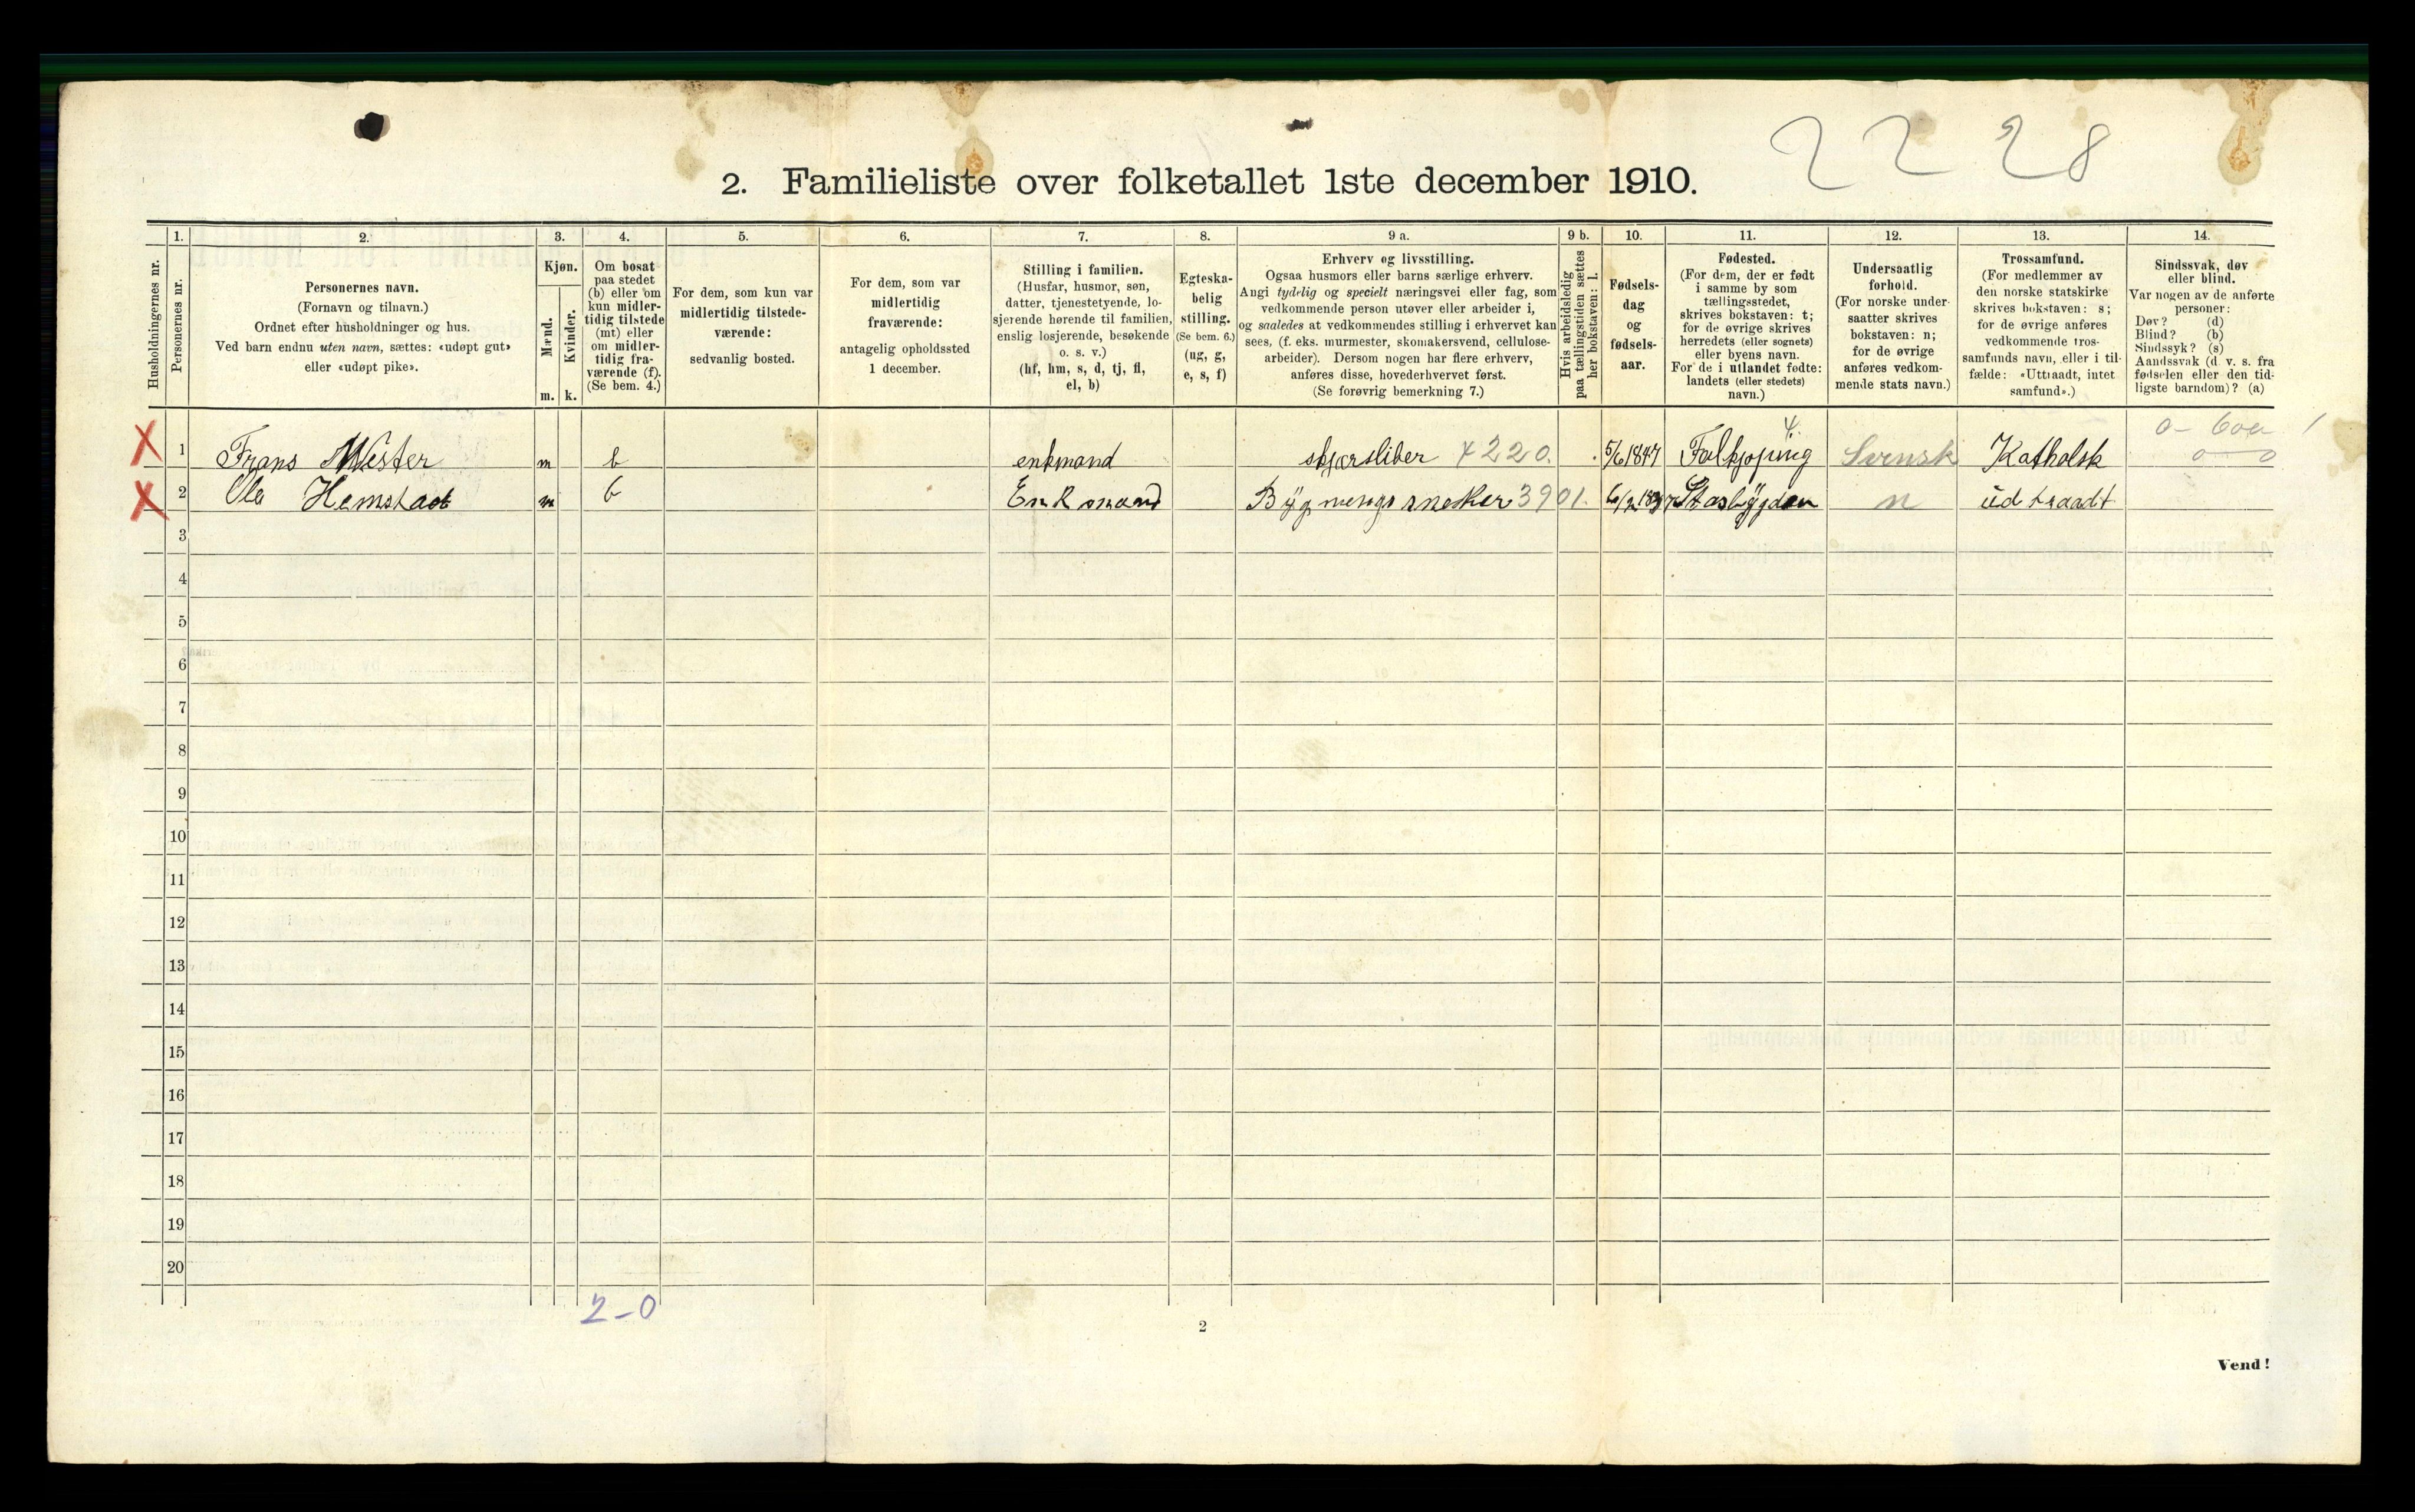 22 28
2. Familieliste over folketallet 1ste december 1910.
Husholdningernes nr.
1.
Personernes nr.
2.
Personernes navn.
(Fornavn og tilnavn.)
Ordnet efter husholdninger og hus.
Ved barn endnu uten navn, sættes: «udøpt gut»
eller «udøpt pike».
3.
Kjøn.
Mænd.
Kvinder.
m. k.
4.
Om bosat
paa stedet
(b) eller om
kun midler-
tidig tilstede
(mt) eller
om midler-
tidig fra-
værende (f).
(Se bem. 4.)
5.
For dem, som kun var
midlertidig tilstede-
værende:
sedvanlig bosted.
6.
For dem, som var
midlertidig
fraværende:
antagelig opholdssted
1 december.
7.
Stilling i familien.
(Husfar, husmor, søn,
datter, tjenestetyende, lo-
sjerende hørende til familien,
enslig losjerende, besøkende
o. s. v.)
(hf, hm, s, d, tj, fl,
el, b)
8.
Egteska-
belig
stilling.
(Se bem. 6.)
(ug, g,
e, s, f)
9 a.
Erhverv og livsstilling.
Ogsaa husmors eller barns særlige erhverv.
Angi tydelig og specielt næringsvei eller fag, som
vedkommende person utøver eller arbeider i,
og saaledes at vedkommendes stilling i erhvervet kan
sees, (f. eks. murmester, skomakersvend, cellulose-
arbeider). Dersom nogen har flere erhverv,
anføres disse, hovederhvervet først.
(Se forøvrig bemerkning 7.)
9 b.
Hvis arbeidsledig
paa tællingstiden sættes
her bokstaven: l.
10.
Fødsels-
dag
og
fødsels-
aar.
11.
Fødested.
(For dem, der er født
i samme by som
tællingsstedet,
skrives bokstaven: t;
for de øvrige skrives
herredets (eller sognets)
eller byens navn.
For de i utlandet fødte:
landets (eller stedets)
navn.)
12.
Undersaatlig
forhold.
(For norske under-
saatter skrives
bokstaven: n;
for de øvrige
anføres vedkom-
mende stats navn.)
13.
Trossamfund.
(For medlemmer av
den norske statskirke
skrives bokstaven: s;
for de øvrige anføres
vedkommende tros-
samfunds navn, eller i til-
fælde: «Uttraadt, intet
samfund».)
14.
Sindssvak, døv
eller blind.
Var nogen av de anførte
personer:
Døv? (d)
Blind? (b)
Sindssyk? (s)
Aandssvak (d. v. s. fra
fødselen eller den tid-
ligste barndom)? (a)
X 1 Frans Wester m b enkmand skjærsliber 4220. 5/6 1847 Falkjøping Svensk Katholsk 0 - 0
X 2 Ola Hemstad m b Enkmand Bygnings sneker 3901. n udtraadt
3
4
5
6
7
8
9
10
11
12
13
14
15
16
17
18
19
20
2-0
2
Vend!